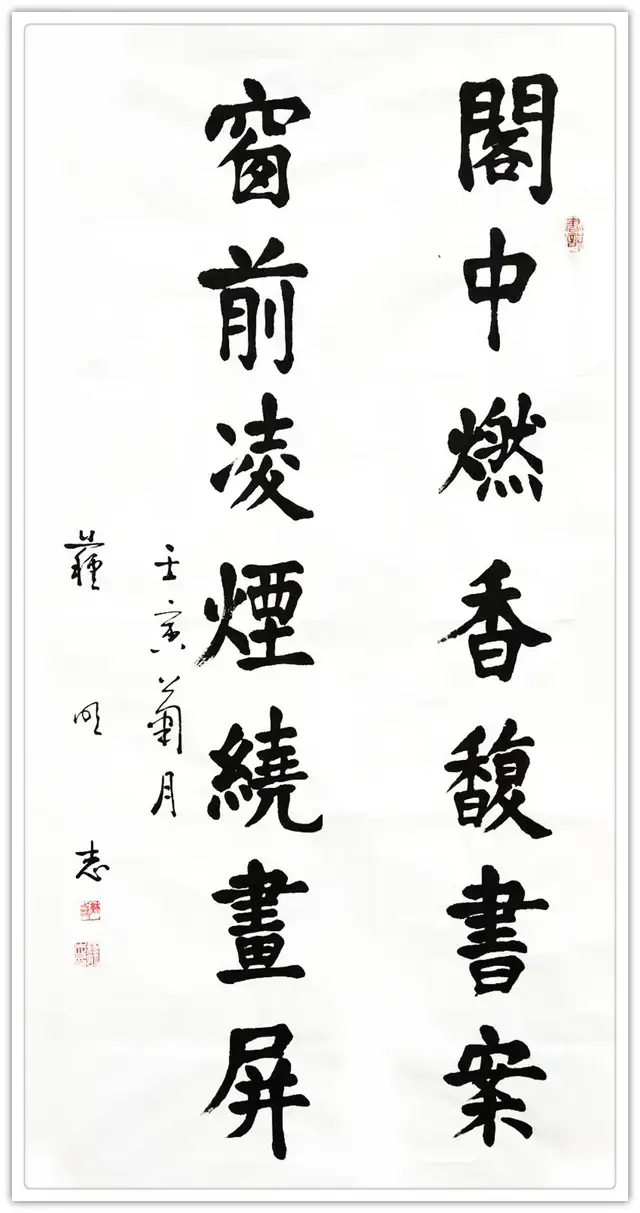 閣中燃香馥書案
窗前凌煙繞畫屏
壬寅菊月
明志